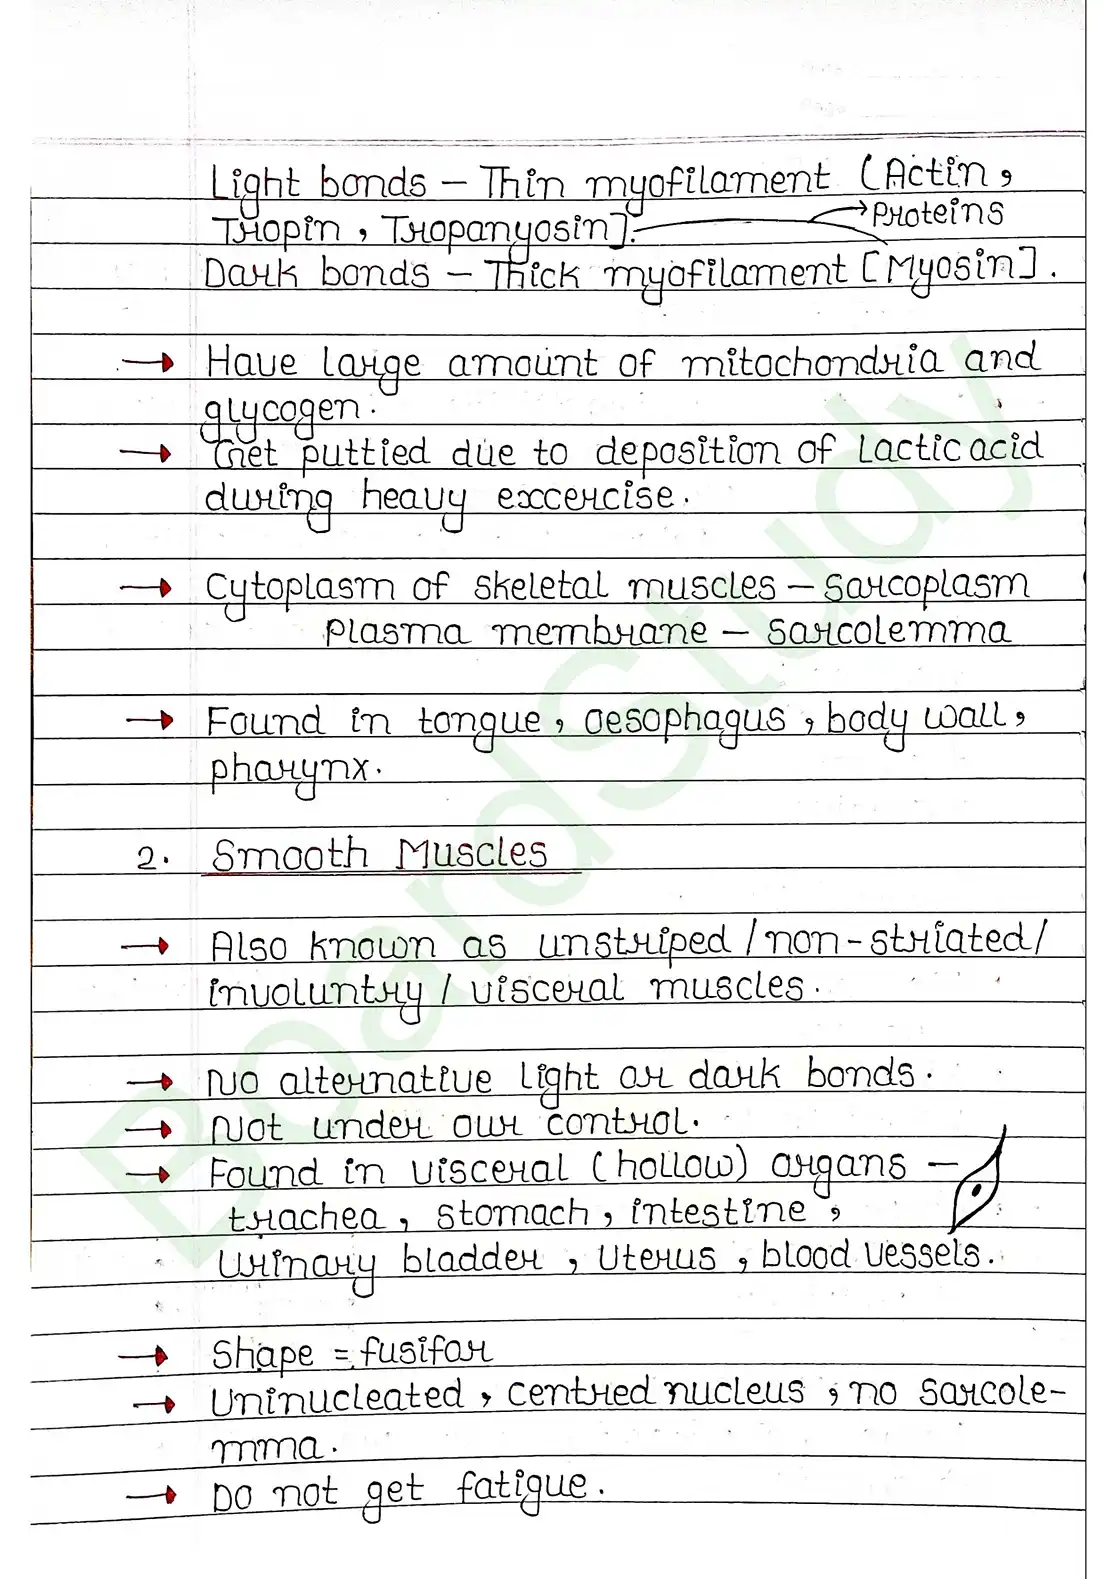 Light bonds – Thin myofilament (Actin,
Tropin, Tropanyosin].
→ Proteins
Dark bonds – Thick myofilament [Myosin].
→ Have large amount of mitochondria and
glycogen.
→ Get puttied due to deposition of Lactic acid
during heavy excercise.
→ Cytoplasm of skeletal muscles – sarcoplasm
plasma membrane – sarcolemma
→ Found in tongue, oesophagus, body wall,
pharynx.
2. Smooth Muscles
→ Also known as unstriped / non-striated /
involuntry / visceral muscles.
→ No alternative light or dark bonds.
→ Not under our control.
→ Found in visceral (hollow) organs –
trachea, stomach, intestine,
Urinary bladder, Uterus, blood vessels.
→ Shape = fusifor
→ Uninucleated, centred nucleus, no sarcole-
mma.
→ Do not get fatigue.
BoardStudy